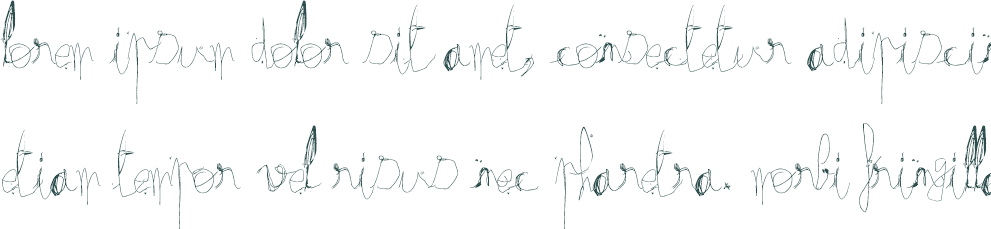 lorem ipsum dolor sit amet, consectetur adipiscin
etiam tempor vel risus nec pharetra. morbi fringilla